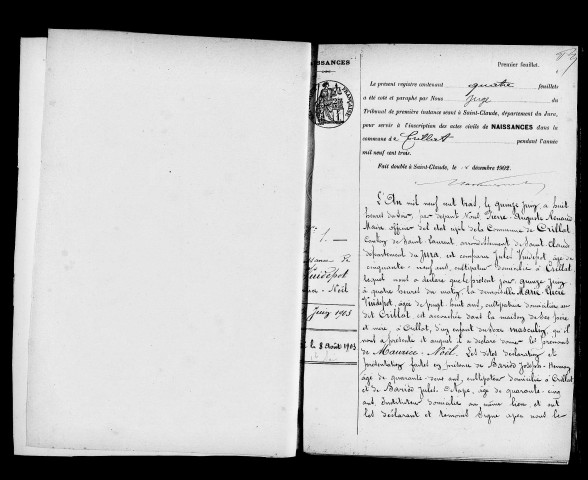 Premier feuillet.
Le présent registre contenant quatre feuillets
a été coté et paraphé par Nous Juge du
Tribunal de première instance séant à Saint-Claude, département du Jura,
pour servir à l'inscription des actes civils de NAISSANCES dans la
commune de Crillat pendant l'année
mil neuf cent trois.
Fait double à Saint-Claude, le décembre 1902.
L'An mil neuf cent trois, le quinze juin, à huit
heures du soir, par devant Nous Pierre Auguste Renaud
Maire officier de l'état civil de la Commune de Crillat
Canton de Saint-Laurent arrondissement de Saint-Claude
département du Jura, est comparu Jules Vuidepot, âgé de
cinquante-neuf ans, cultivateur domicilié à Crillat
lequel nous a déclaré que le présent jour quinze juin
à quatre heures du matin la demoiselle Marie
Vuidepot, âgée de vingt huit ans, cultivatrice domiciliée au
dit Crillat, est accouchée dans la maison de ses père
et mère à Crillat, d'un enfant du sexe masculin, qu'il
nous a présenté et auquel il a déclaré donner les prénoms
de Maurice-Noël. Les dites déclaration et
présentation faites en présence de Bariod Joseph
âgé de quarante-deux ans, cultivateur domicilié à Crillat
et de Bariod Jules, âgé de quarante-cinq
ans, Instituteur domicilié au même lieu, et ont
les déclarant et témoins signé après nous le
NAISSANCES
N° 1.
Naissance de
Vuidepot
Maurice-Noël
Juin 1903
le 8 Août 1903